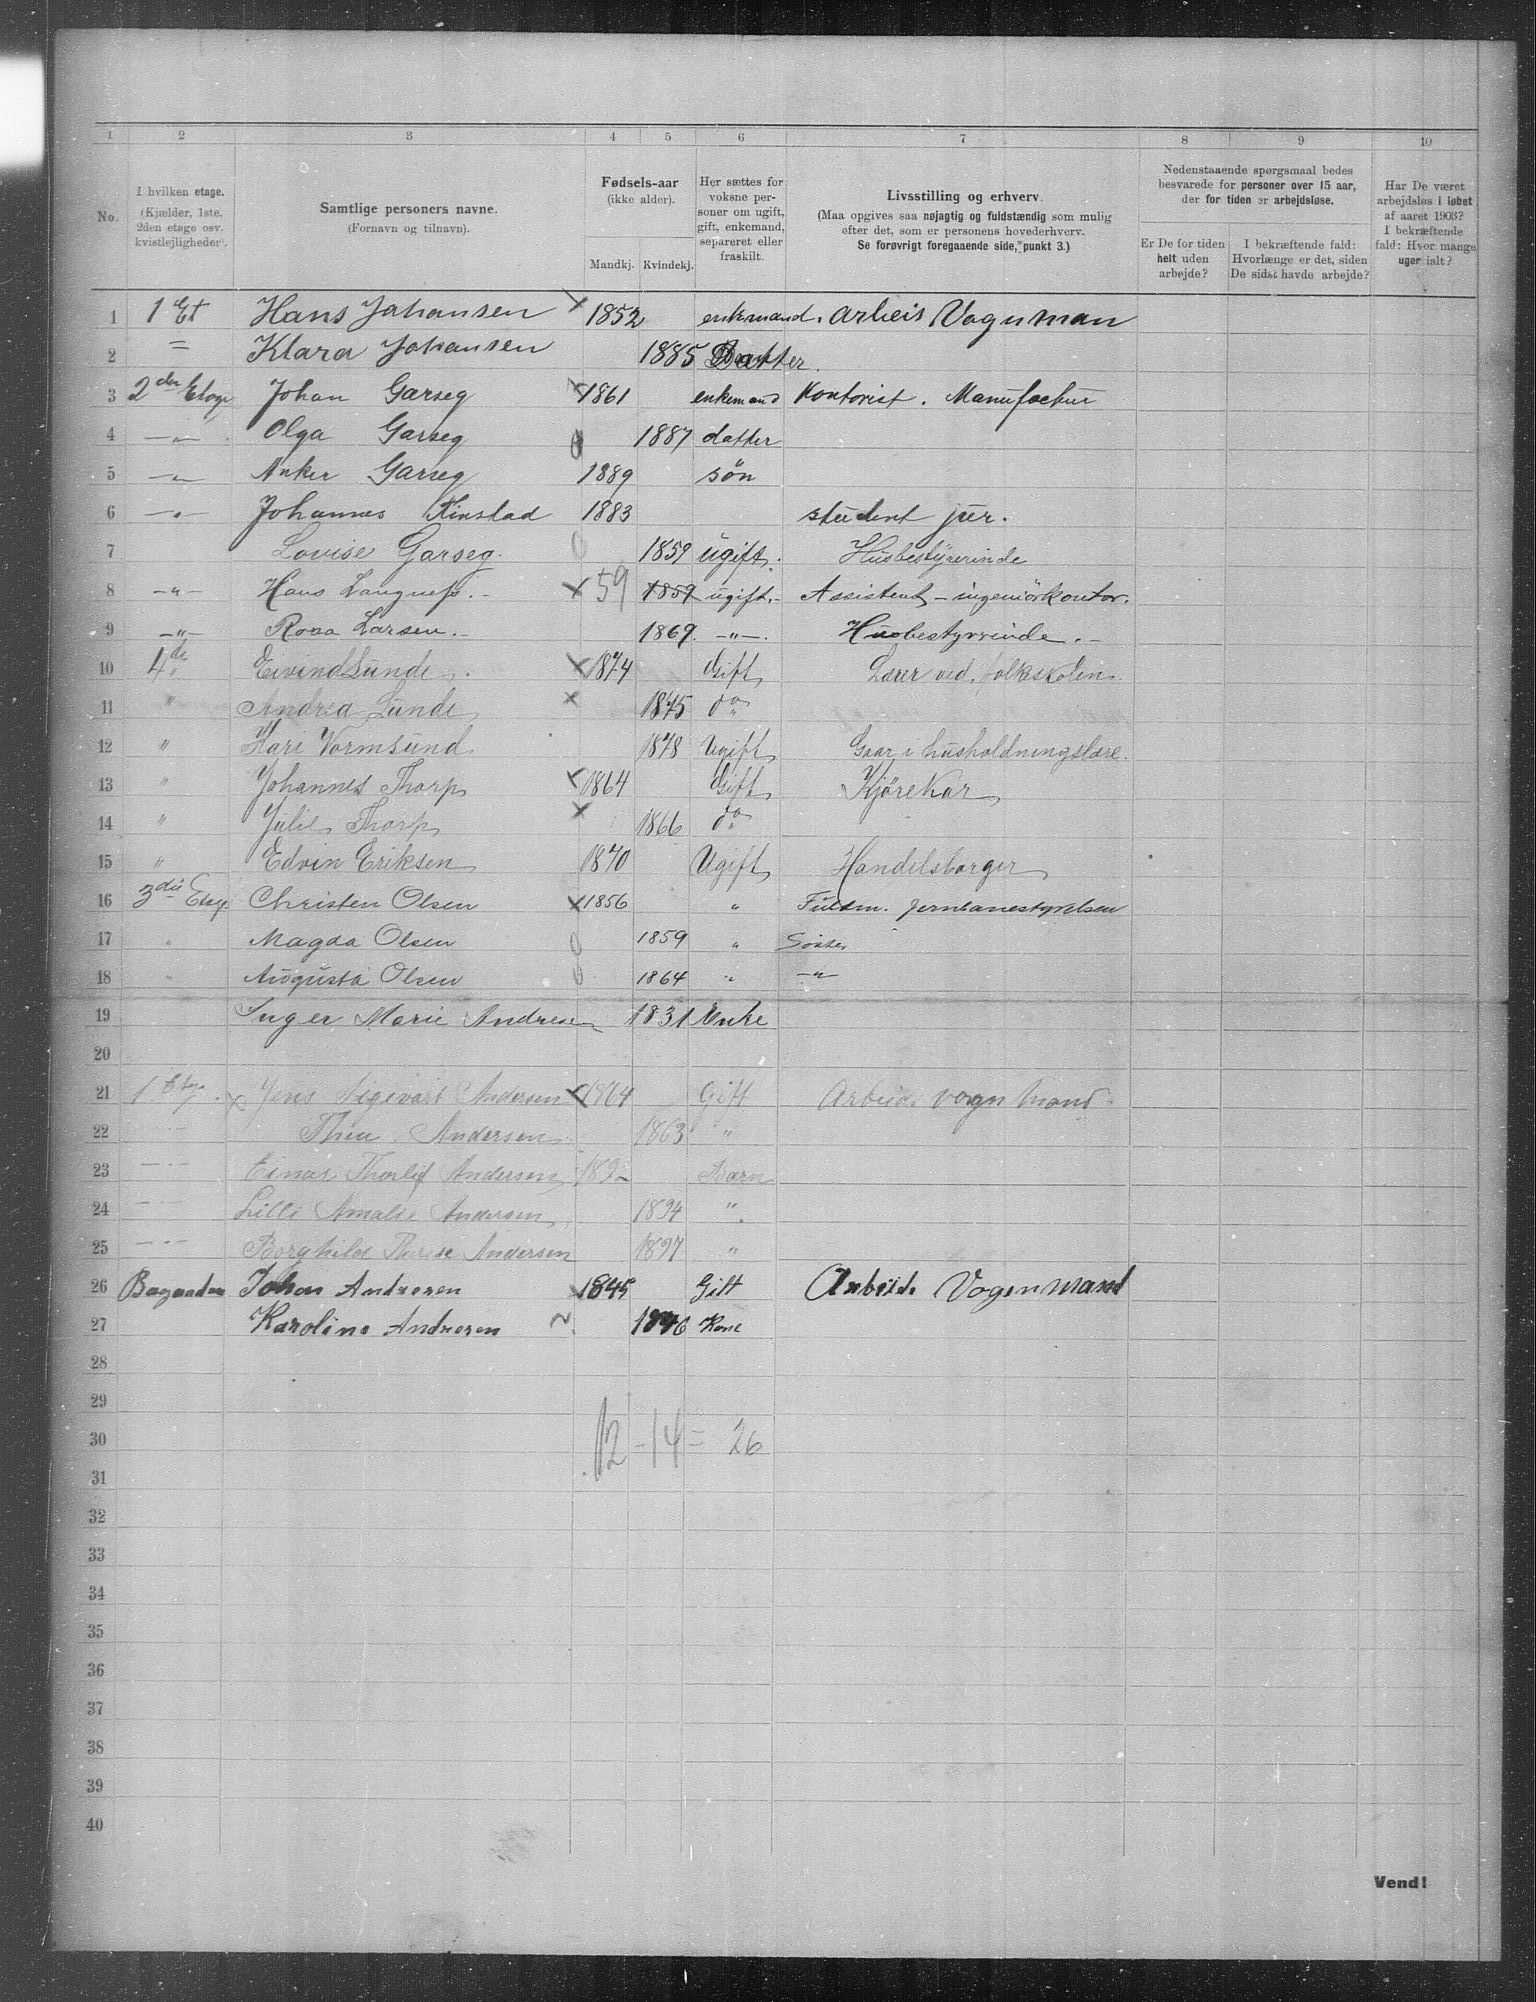 1 2 3 4 5 6 7 8 9 10
No.
I hvilken etage.
(Kjælder, 1ste,
2den etage osv.
kvistlejligheder).
Samtlige personers navne.
(Fornavn og tilnavn).
Fødsels-aar
(ikke alder).
Mandkj. Kvindekj.
Her sættes for
voksne per-
soner om ugift,
gift, enkemand,
separeret eller
fraskilt.
Livsstilling og erhverv.
(Maa opgives saa nøjagtig og fuldstændig som mulig
efter det, som er personens hovederhverv.
Se forøvrigt foregaaende side, punkt 3.)
Nedenstaaende spørgsmaal bedes
besvarede for personer over 15 aar,
der for tiden er arbejdsløse.
Er De for tiden
helt uden
arbejde?
I bekræftende fald:
Hvorlænge er det, siden
De sidst havde arbejde?
Har De været
arbejdsløs i løbet
af aaret 1903?
I bekræftende
fald: Hvor mange
uger ialt?
1 1 Et Hans Johansen x 1852 enkemand. Arbeis Vognman
2 = Klara Johansen 1885 Datter.
3 2den Etage Johan Garseg x 1861 enkemand Kontorist. Manufactur
4 —"— Olga Garseg 0 1887 datter
5 —"— Anker Garseg 1889 søn
6 —"— Johannes Finstad 1883 student jur.
7 Lovise Garseg. 0 1859 ugift. Husbestyrerinde
8 —"— Hans x 59 1859 ugift.- Assistent - ingeniörkontor.
9 —"— Rosa Larsen.- 1869. —"—. Husbestyrrinde.-
10 4de Eivind Lunde x 1874 Gift Lærer ved folkeskolen.
11 " Andrea Lunde x 1875 do
12 " Kari Vormsund 1878 Ugift Gaar i husholdningslære.
13 " Johannes Thorp x 1864 Gift Kjørekar
14 " Julie Thorp x 1866 do
15 " Edvin Eriksen 1870 Ugift Handelsborger
16 3die Etag. Christen Olsen x 1856 " Fuldm. jernbanestyrelsen
17 " Magda Olsen 0 1859 " Søster
18 " Augusta Olsen 0 1864 " —"
19 Inger Marie Andresen 1831 Enke
20
21 1. Etg. x Jens Sigvart Andersen x 1864 Gift Arbeid. vogn Mand.
22 Andersen 1863 "
23 Einar Thorlif Andersen 189- Barn
24 Lilli Amalie Andersen 1894 "
25 Borghild Andersen 1897 "
26 Bagaarden Johan Andresen x 1845 Gift Arbeid. Vogenmand
27 Karoline Andresen ~ 1846 Kone
28
29
30 12 - 14 = 26
31
32
33
34
35
36
37
38
39
40
Vend!